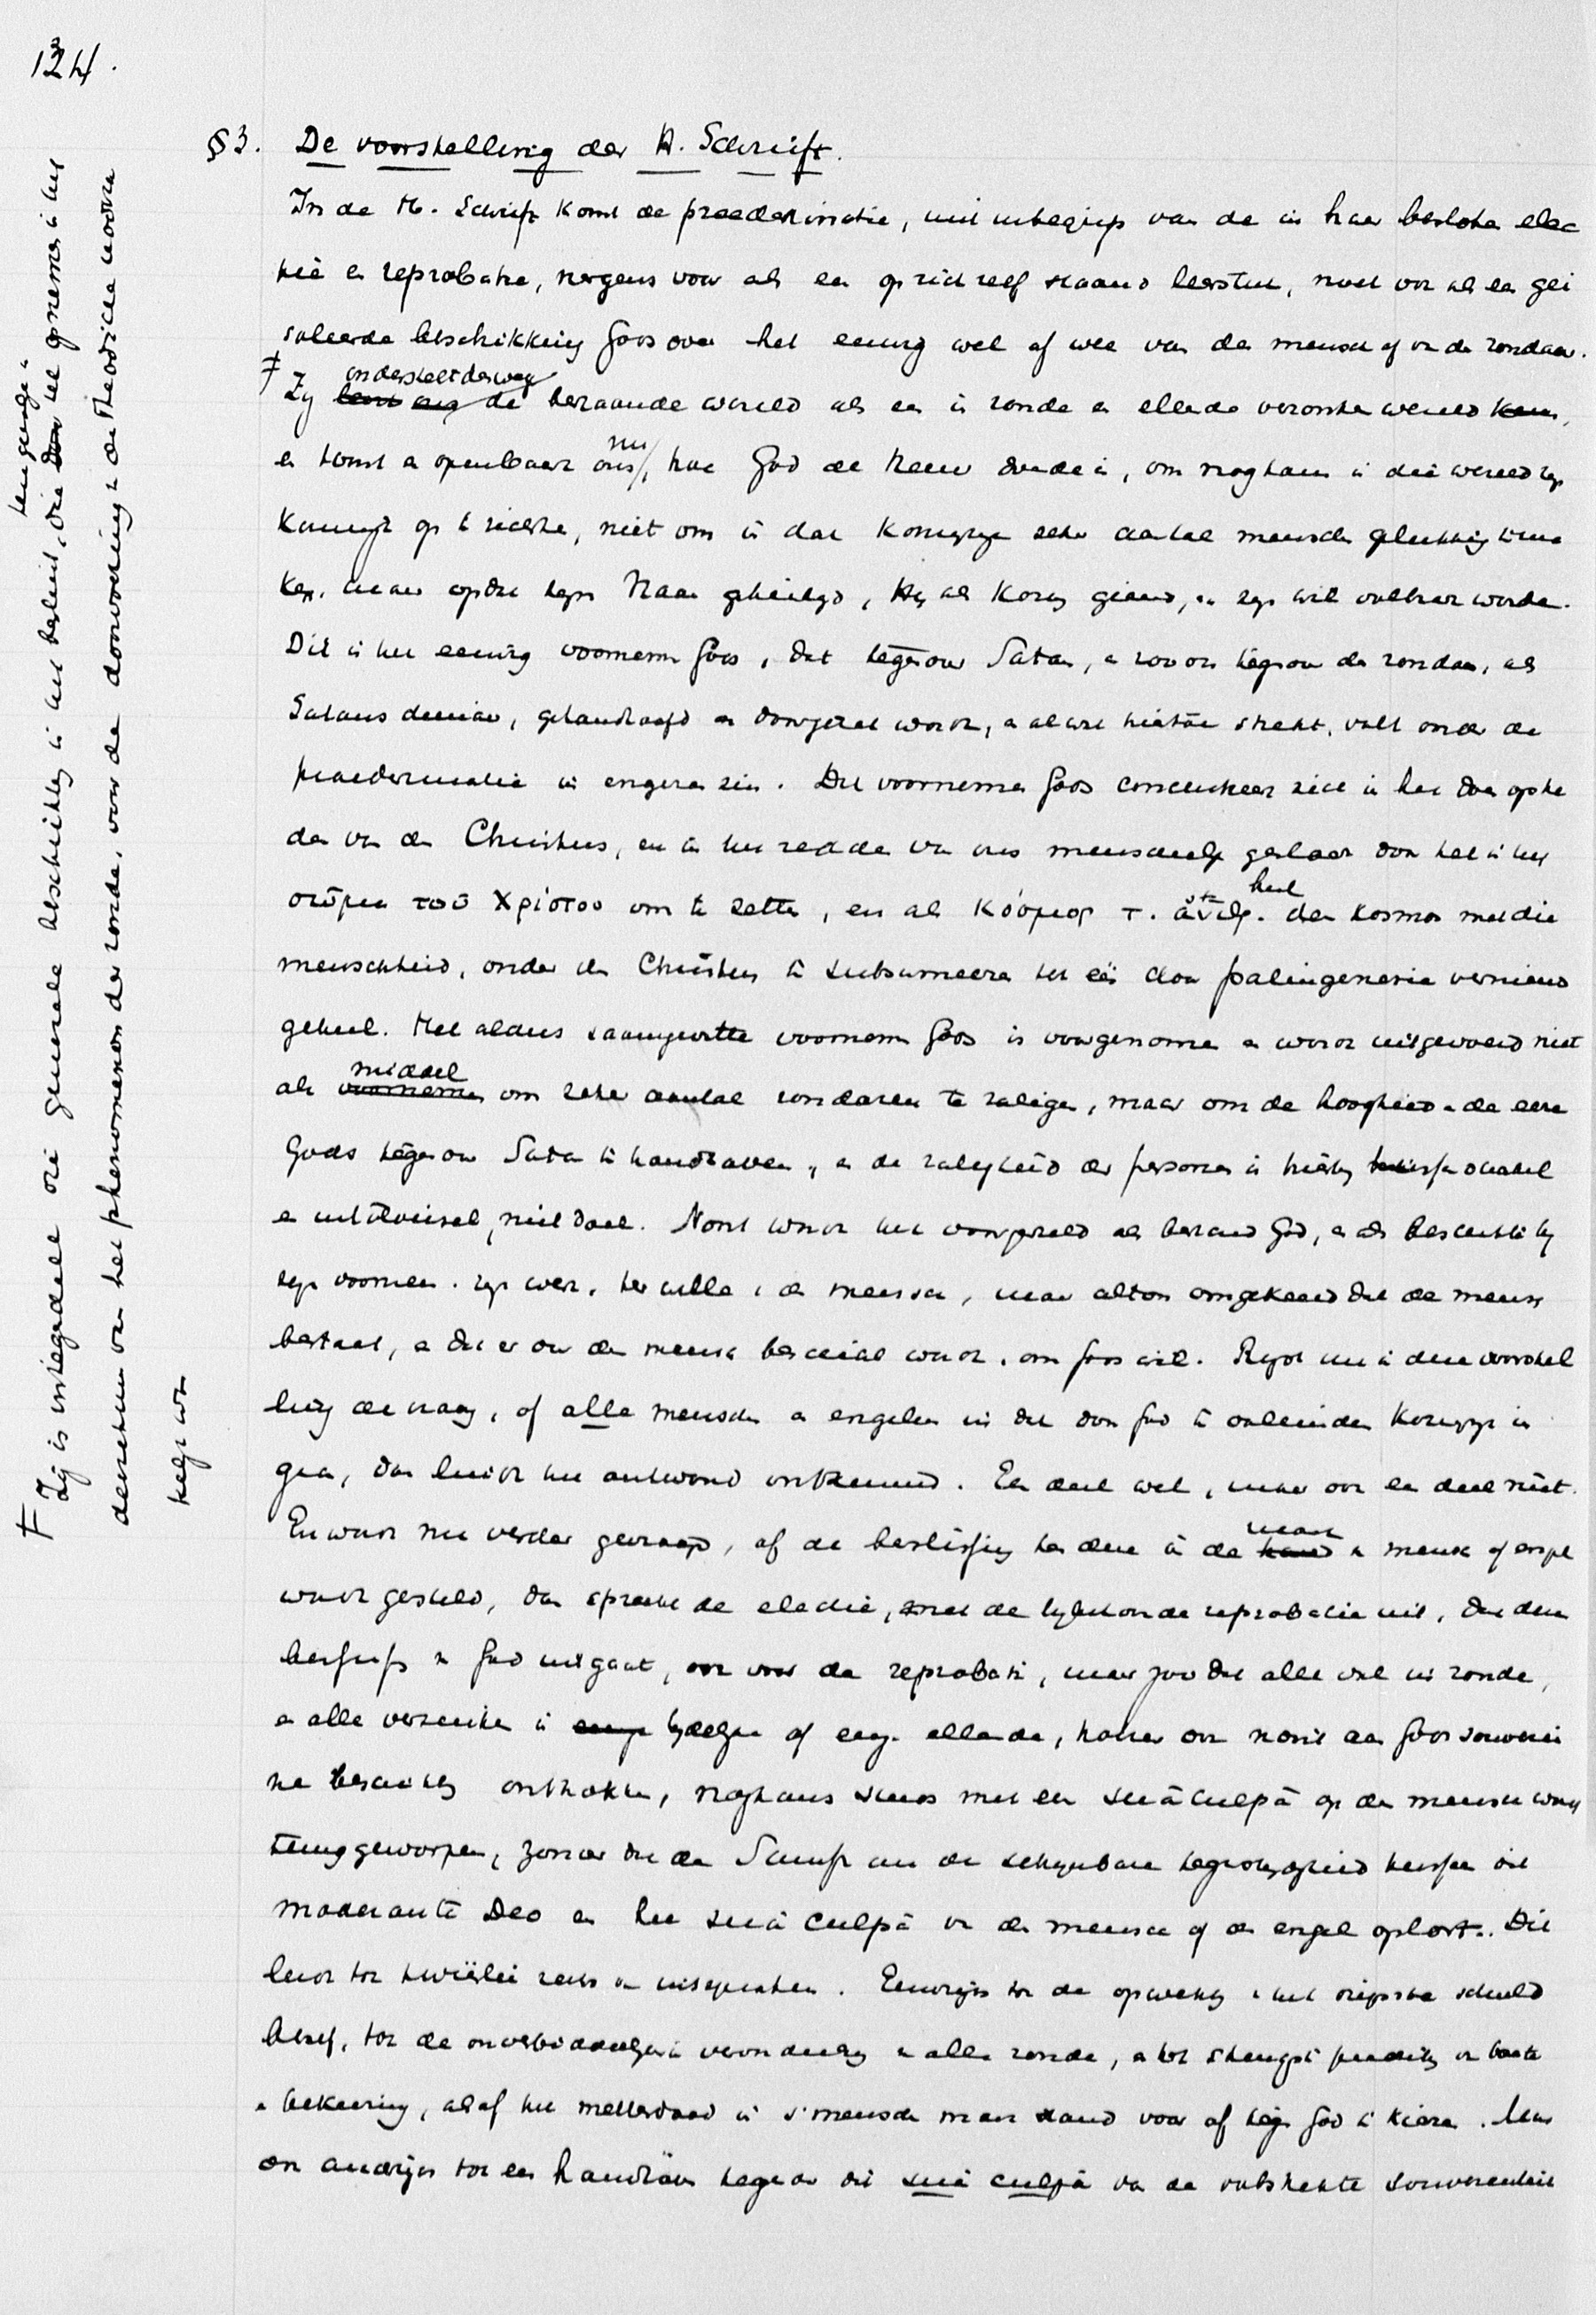 134.
§ 3. De voorstelling der H. Schrift.
In de H. Schrift komt de praedestinatie, met inbegrip van de in haar besloten elec
tie en reprobatie, nergens voor als een op zich zelf staand leerstuk, noch ook als een geï
soleerde beschikking Gods over het eeuwig wel of wee van den mensch of van den zondaar.
Ŧ Zij onderstelt desweg de bestaande wereld als een in zonde en ellende verzonken wereld
en komt en openbaart ons nu, hoe God de Heere daarin, om nogthans in die wereld zijn
Koninkrijk op te richten, niet om in dat Koninkrijk zeker aantal menschen gelukkig te ma
ken, maar opdat zijn Naam geheiligd, Hij als Koning geëerd, en zijn wil volbracht worde.
Dit is het eeuwig voornemen Gods, dat tegenover Satan, en zoo ook tegenover den zondaar, als
Satans dienaar, gehandhaafd en doorgezet wordt, en al wat hiertoe strekt, valt onder de
praedestinatie in engeren zin. Dit voornemen Gods concentreert zich in het doen optre
den van den Christus, en in het redden van ons menschelijk geslacht door het in het
σῶμα τοῦ Χρίστου om te zetten, en als κόσμος heel den kosmos met die
menschheid, onder den Christus te subsumeeren tot één door palingenesie vernieuwd
geheel. Het aldus saamgevatte voornemen Gods is voorgenomen en wordt uitgevoerd niet
als middel om zeker aantal zondaren te zaligen, maar om de hoogheid en de eere
Gods tegenover Satan te handhaven, en de zaligheid der personen is hierbij
en uitvloeisel, niet doel. Nooit wordt het voorgesteld als bestond God, en als beschikte hij
zijn voornemen, zijn werk, ter wille van den mensch, maar altoos omgekeerd dat de mensch
bestaat, en dat er over den mensch beschikt wordt, om Gods wil. Rijst nu in deze voorstel
ling de vraag, of alle menschen en engelen in dit door God te voleinden Koninkrijk in
gaan, dan luidt het antwoord ontkennend. Een deel wel, maar ook een deel niet.
En wordt nu verder gevraagd, of de beslissing ten deze in de macht van mensch of engel
wordt gesteld, dan spreekt de electie, met de bijkomende reprobatie uit, dat deze
van God uitgaat, ook voor de reprobati, maar zoo dat alle val in zonde,
en alle verzinken in tijdelijke of eeuwige ellende, hoewel ook nooit aan Gods souverei
ne beschikking onttrokken, nogthans steeds met een suâ culpâ op den mensch wordt
teruggeworpen, zonder dat de Schrift ooit de schijnbare tegenstrijdigheid tusschen dit
moderante Deo en het suâ culpâ van den mensch of den engel oplost. Dit
leidt tot tweeërlei reeks van uitspraken. Eenerzijds tot de opwekking van het diepste schuld
besef, tot de onverbiddelijke veroordeeling van alle zonde, en tot strengste prediking van boete
en bekeering, alsof het metterdaad in 's menschen macht stond voor of tegen God te kiezen. Maar
ook anderzijds tot een handhaven tegenover dit suâ culpâ van de volstrekte souvereiniteit
Ŧ Zij is integreerend die generale beschikking in het besluit, die het opnemen in het
teweeg
deereeten van het phenomenon der zonde, voor de doorvoering van de Theodicee noodza
kelijk was